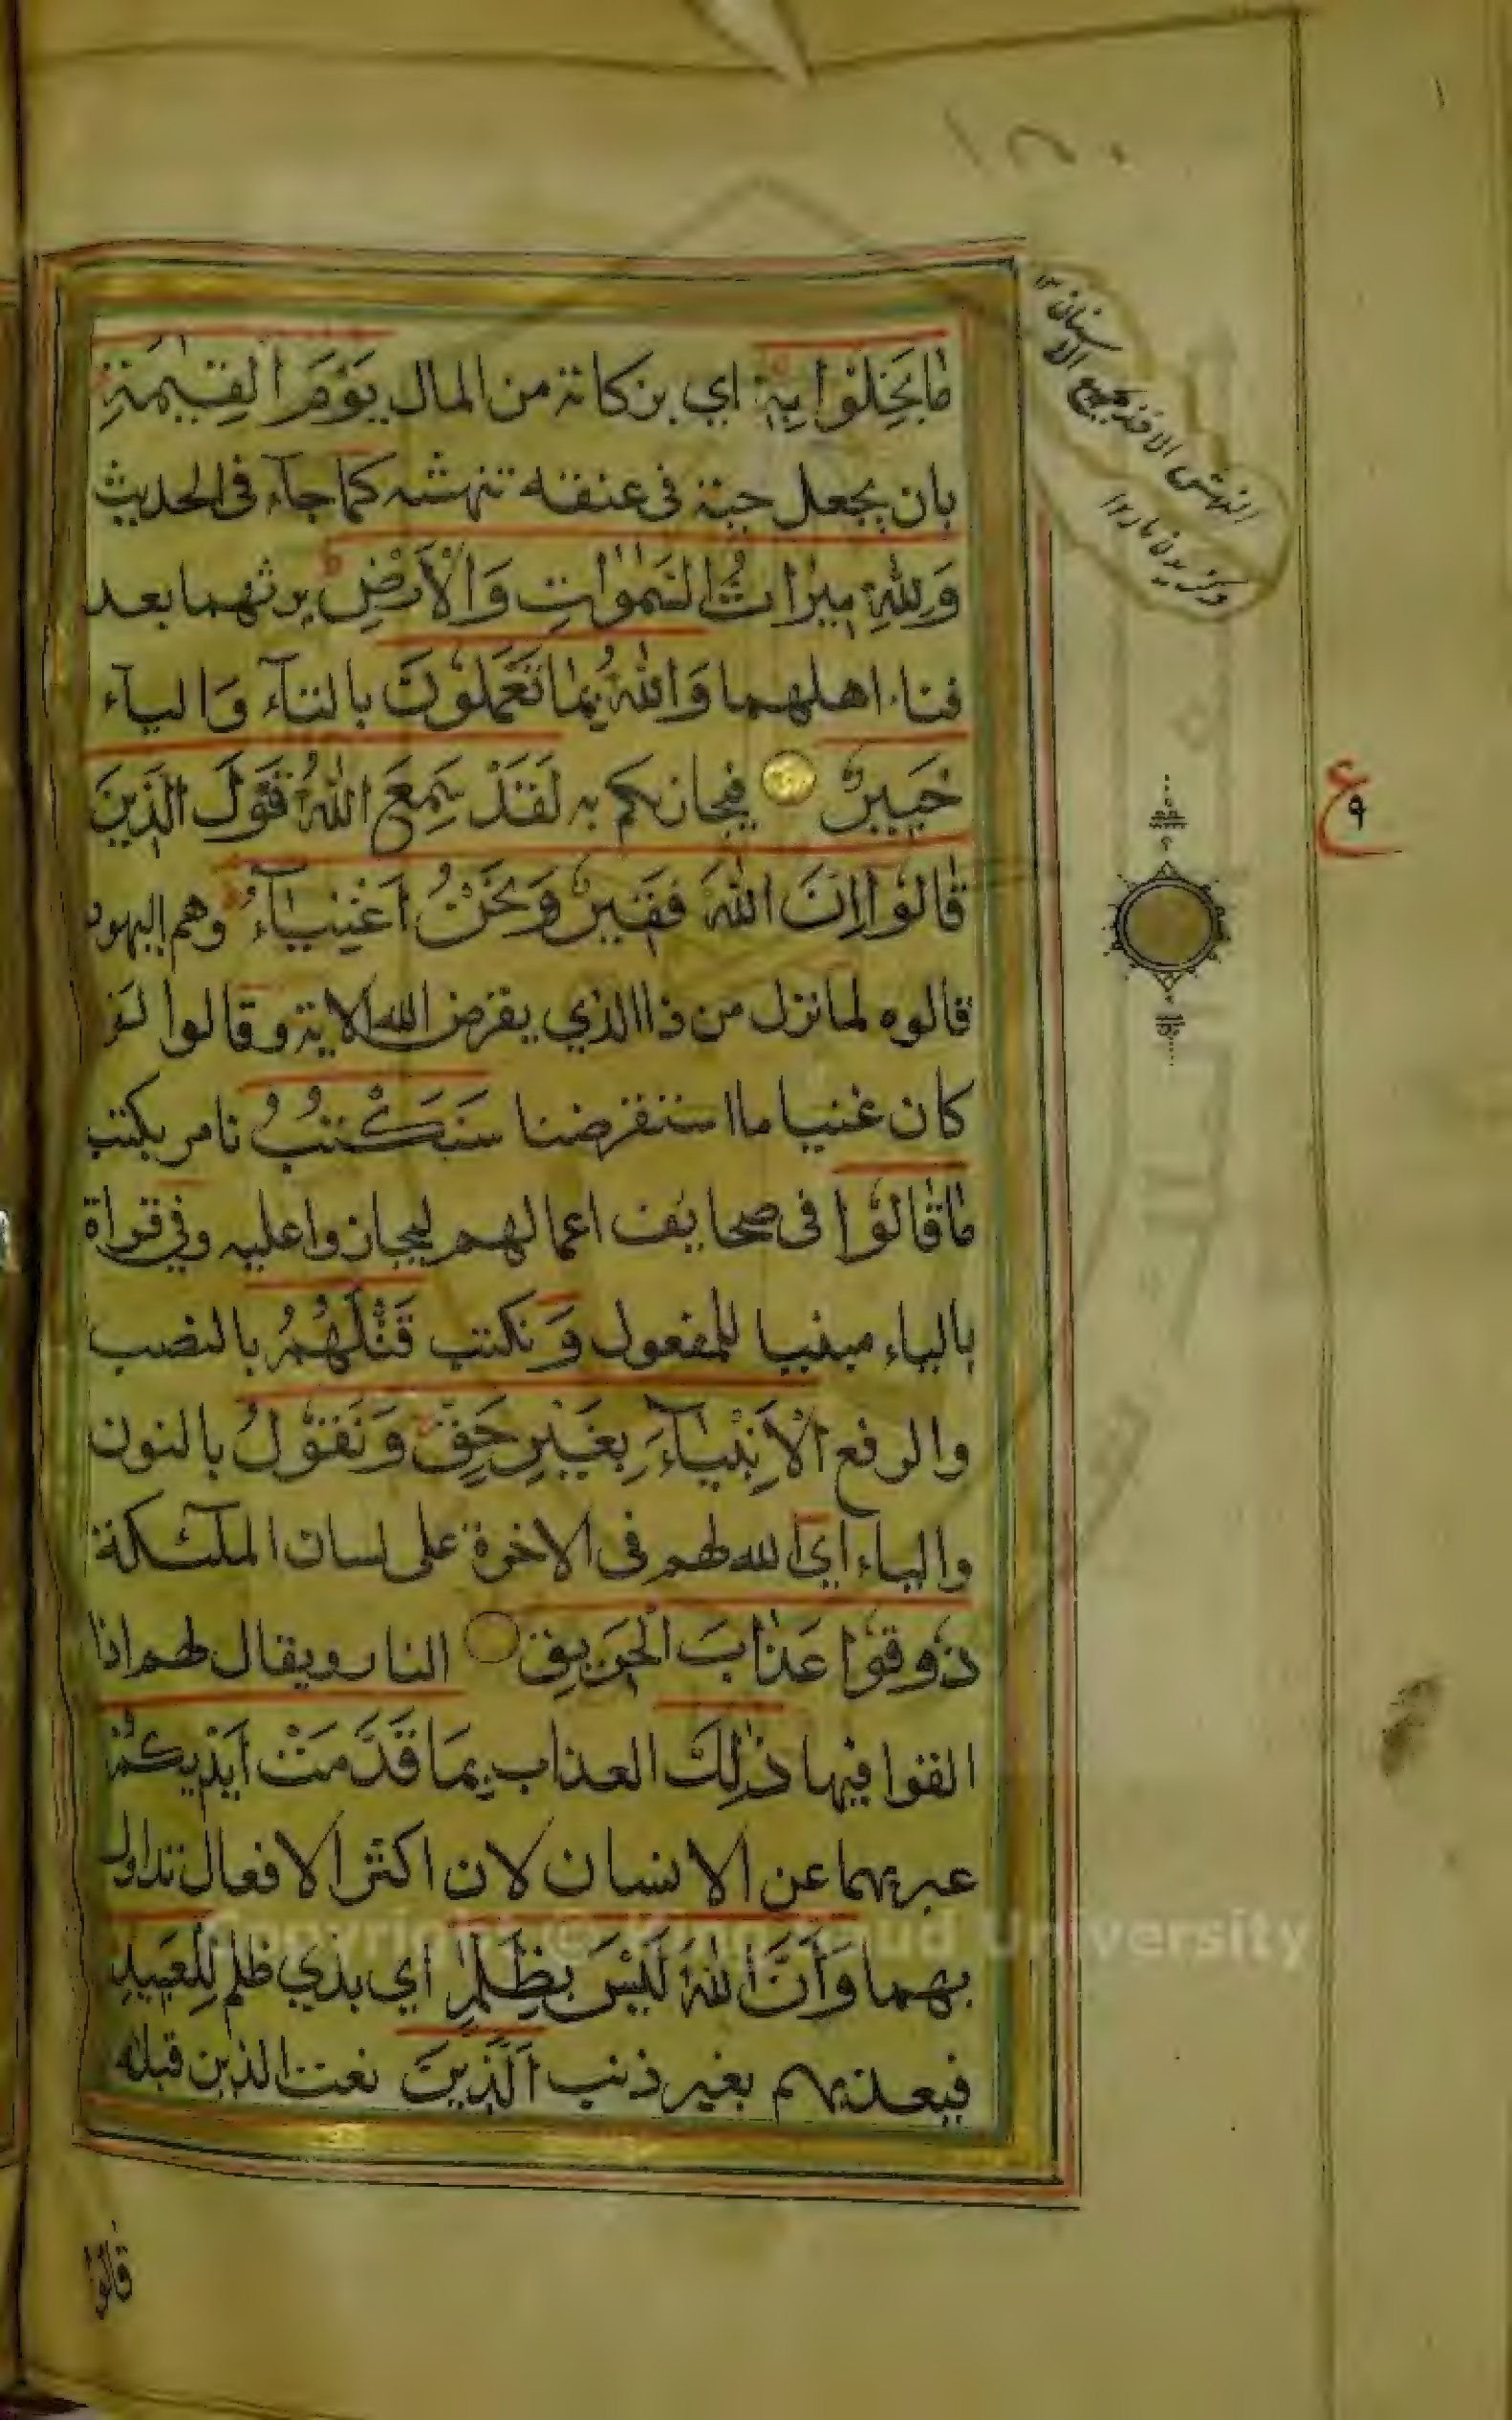 ١٢٠
مَا بَخِلُوا بِهٖ اي بزكاته من المال يَوْمَ الْقِيٰمَةِ
بان يجعل حية فى عنقه تنهشه كما جآء فى الحديث
وَلِلّٰهِ مِيْرَاثُ السَّمٰوٰتِ وَالْاَرْضِ يرثهما بعد
فناء اهلهما وَاللّٰهُ بِمَا تَعْمَلُوْنَ بالتآء وَاليآء
خَبِيرٌ فيجازيكم به لَقَدْ سَمِعَ اللّٰهُ قَوْلَ الَّذِينَ
قَالُوْا اِنَّ اللّٰهَ فَقِيرٌ وَنَحْنُ اَغْنِيَآءُ وهم اليهود
قالوه لما نزل من ذا الذي يقرض الله الاية وقالوا لو
كان غنيا ما استقرضنا سَنَكْتُبُ نامر بكتب
مَا قَالُوْا فى صحايف اعمالهم ليجازوا عليه وفي قراة
بالياء مبنيا للمفعول وَ نكتب قَتْلَهُمُ بالنصب
والرفع الْاَنْبِيَآءَ بِغَيْرِ حَقٍّ وَنَقُوْلُ بالنون
والياء اي الله لهم فى الاخرة على لسان الملٓئكة
ذُوقُوْا عَذَابَ الْحَرِيقِ النار ويقال لهم اذا
القوا فيها ذٰلِكَ العذاب بِمَا قَدَّمَتْ اَيْدِيكُمْ
عبر بهما عن الانسان لان اكثر الافعال تداول
بهما وَاَنَّ اللّٰهَ لَيْسَ بِظَلَّامٍ اي بذي ظلم لِلْعَبِيدِ
فيعذبهم بغير ذنب اَلَّذِينَ نعت الذين قبله
قالوا
النهش الاخذ بجميع الاسنان ١٢
ع ٩
Copyright © King Saud University